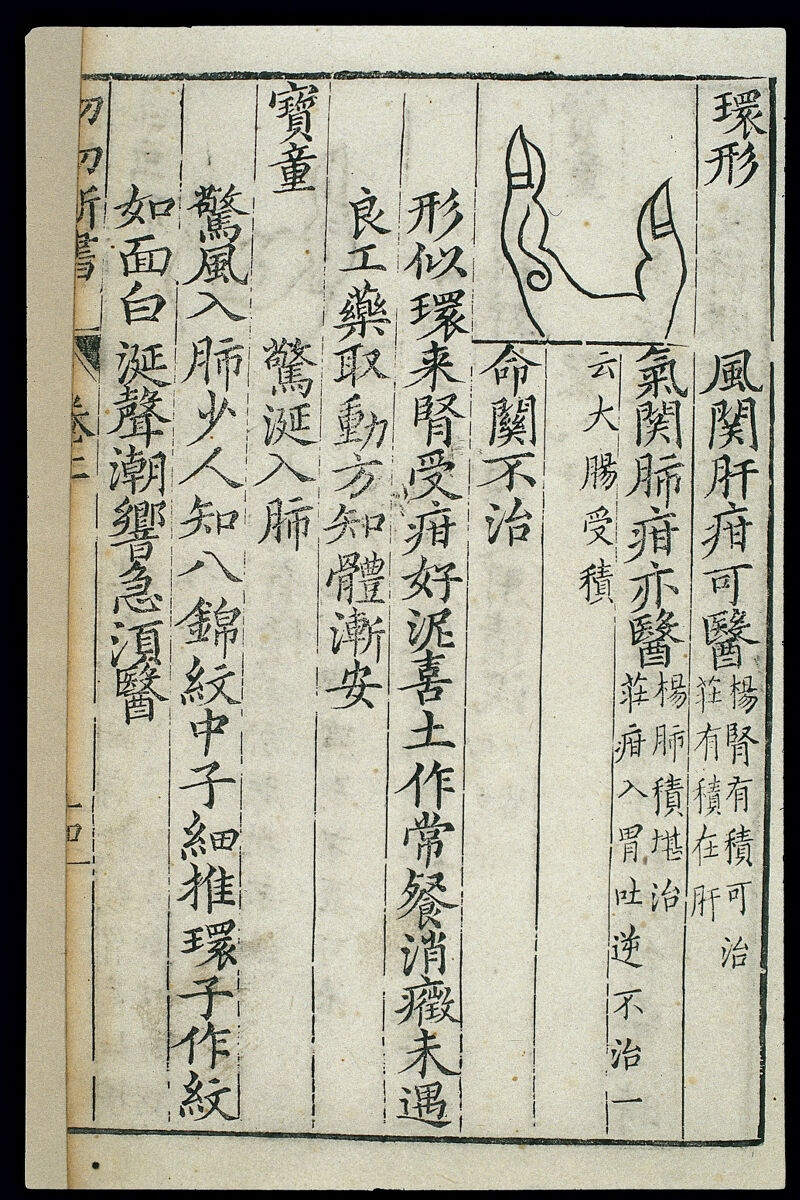 環形
風関肝疳可醫
楊腎有積可治
莊有積在肝
氣関肺疳亦醫
楊肺積堪治
莊疳入胃吐逆不治一
云大腸受積
命關不治
形似環来腎受疳好泥喜土作常餐消癥未遇
良工藥取動方知體漸安
寶童
驚涎入肺
驚風入肺少人知八錦紋中子細推環子作紋
如面白涎聲潮響急須醫